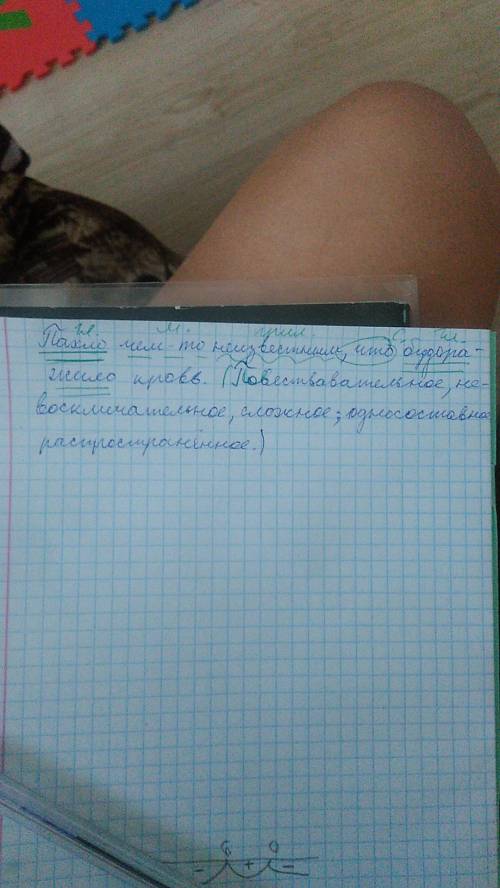 гл. м. прил. с. гл.
Пахло чем-то неизвестным, что будора-
жило кровь. (Повествавательное, не-
восклицательное, сложное; односоставное
распространённое.)
- + -